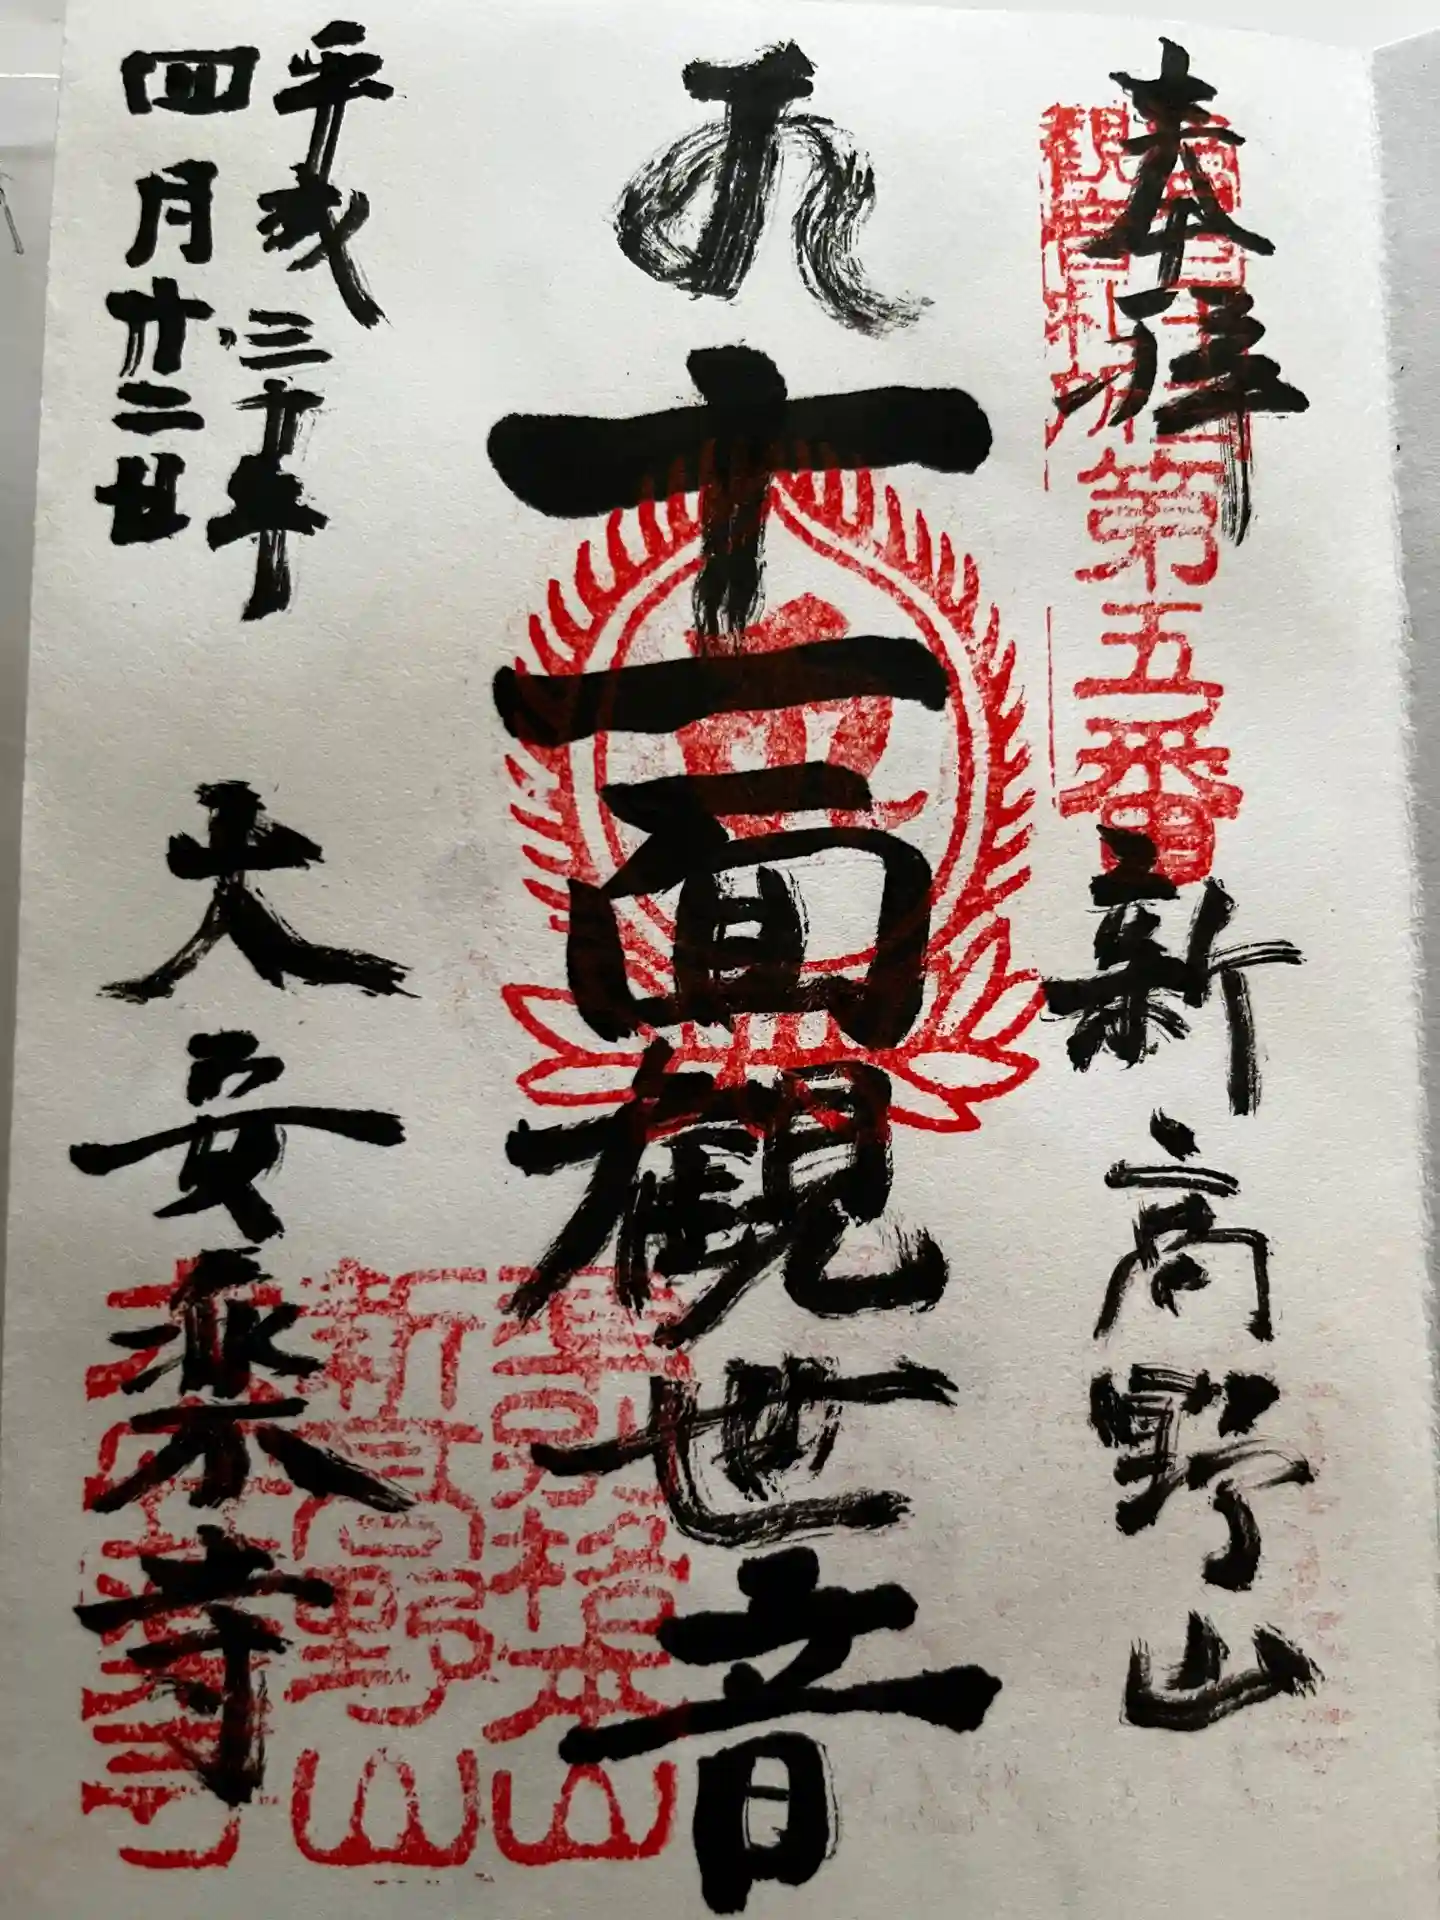 奉拝
新高野山
十一面観世音
平成三十年
四月廿二日
大安楽寺
観音札所
第五番
準別格本山
新高野山
大安楽寺